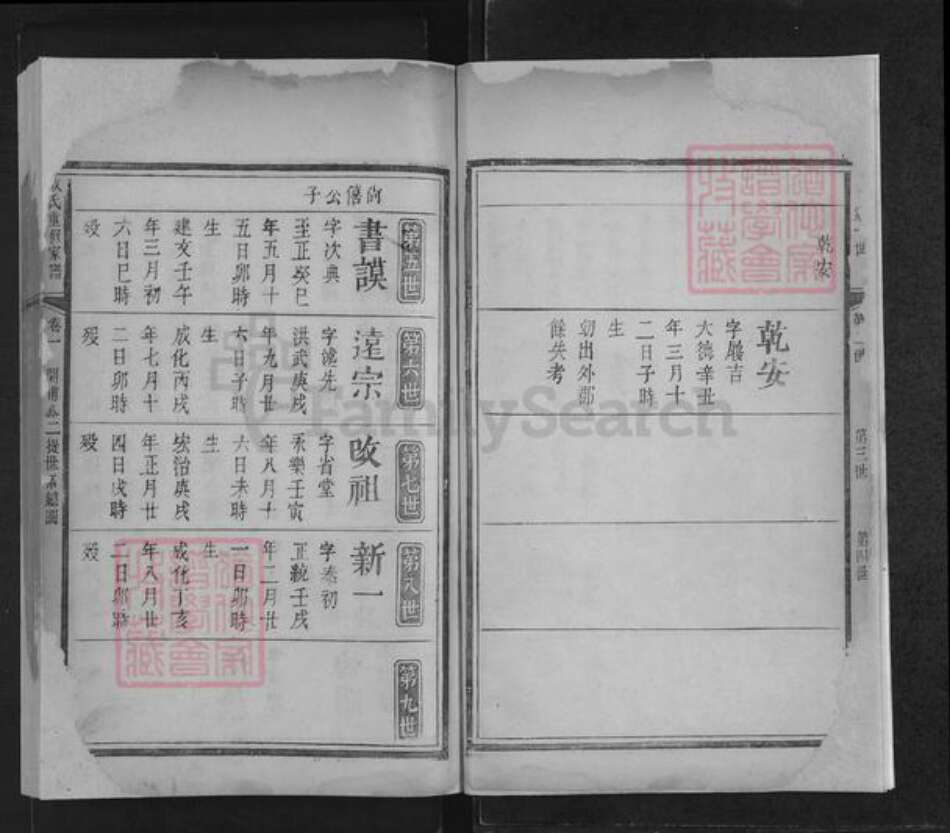 乾安
乾安
字殿吉
大德辛丑
年三月十
二日子時
生
幼出外鄉
餘失考
第三世
第四世
第五世
第六世
第七世
第八世
第九世
公子
書謨
字次典
至正癸巳
年五月十
五日卯時
生
建文壬午
年三月初
六日巳時
歿
遠宗
字 先
洪武庚戌
年九月廿
六日子時
生
成化丙戌
年七月十
二日卯時
歿
改祖
字省堂
永樂壬寅
年八月十
六日未時
生
宏治庚戌
年正月廿
四日戌時
歿
新一
字泰初
正統壬戌
年二月廿
一日卯時
生
成化丁亥
年八月廿
二日卯時
歿
氏重修家譜
卷一
FamilySearch